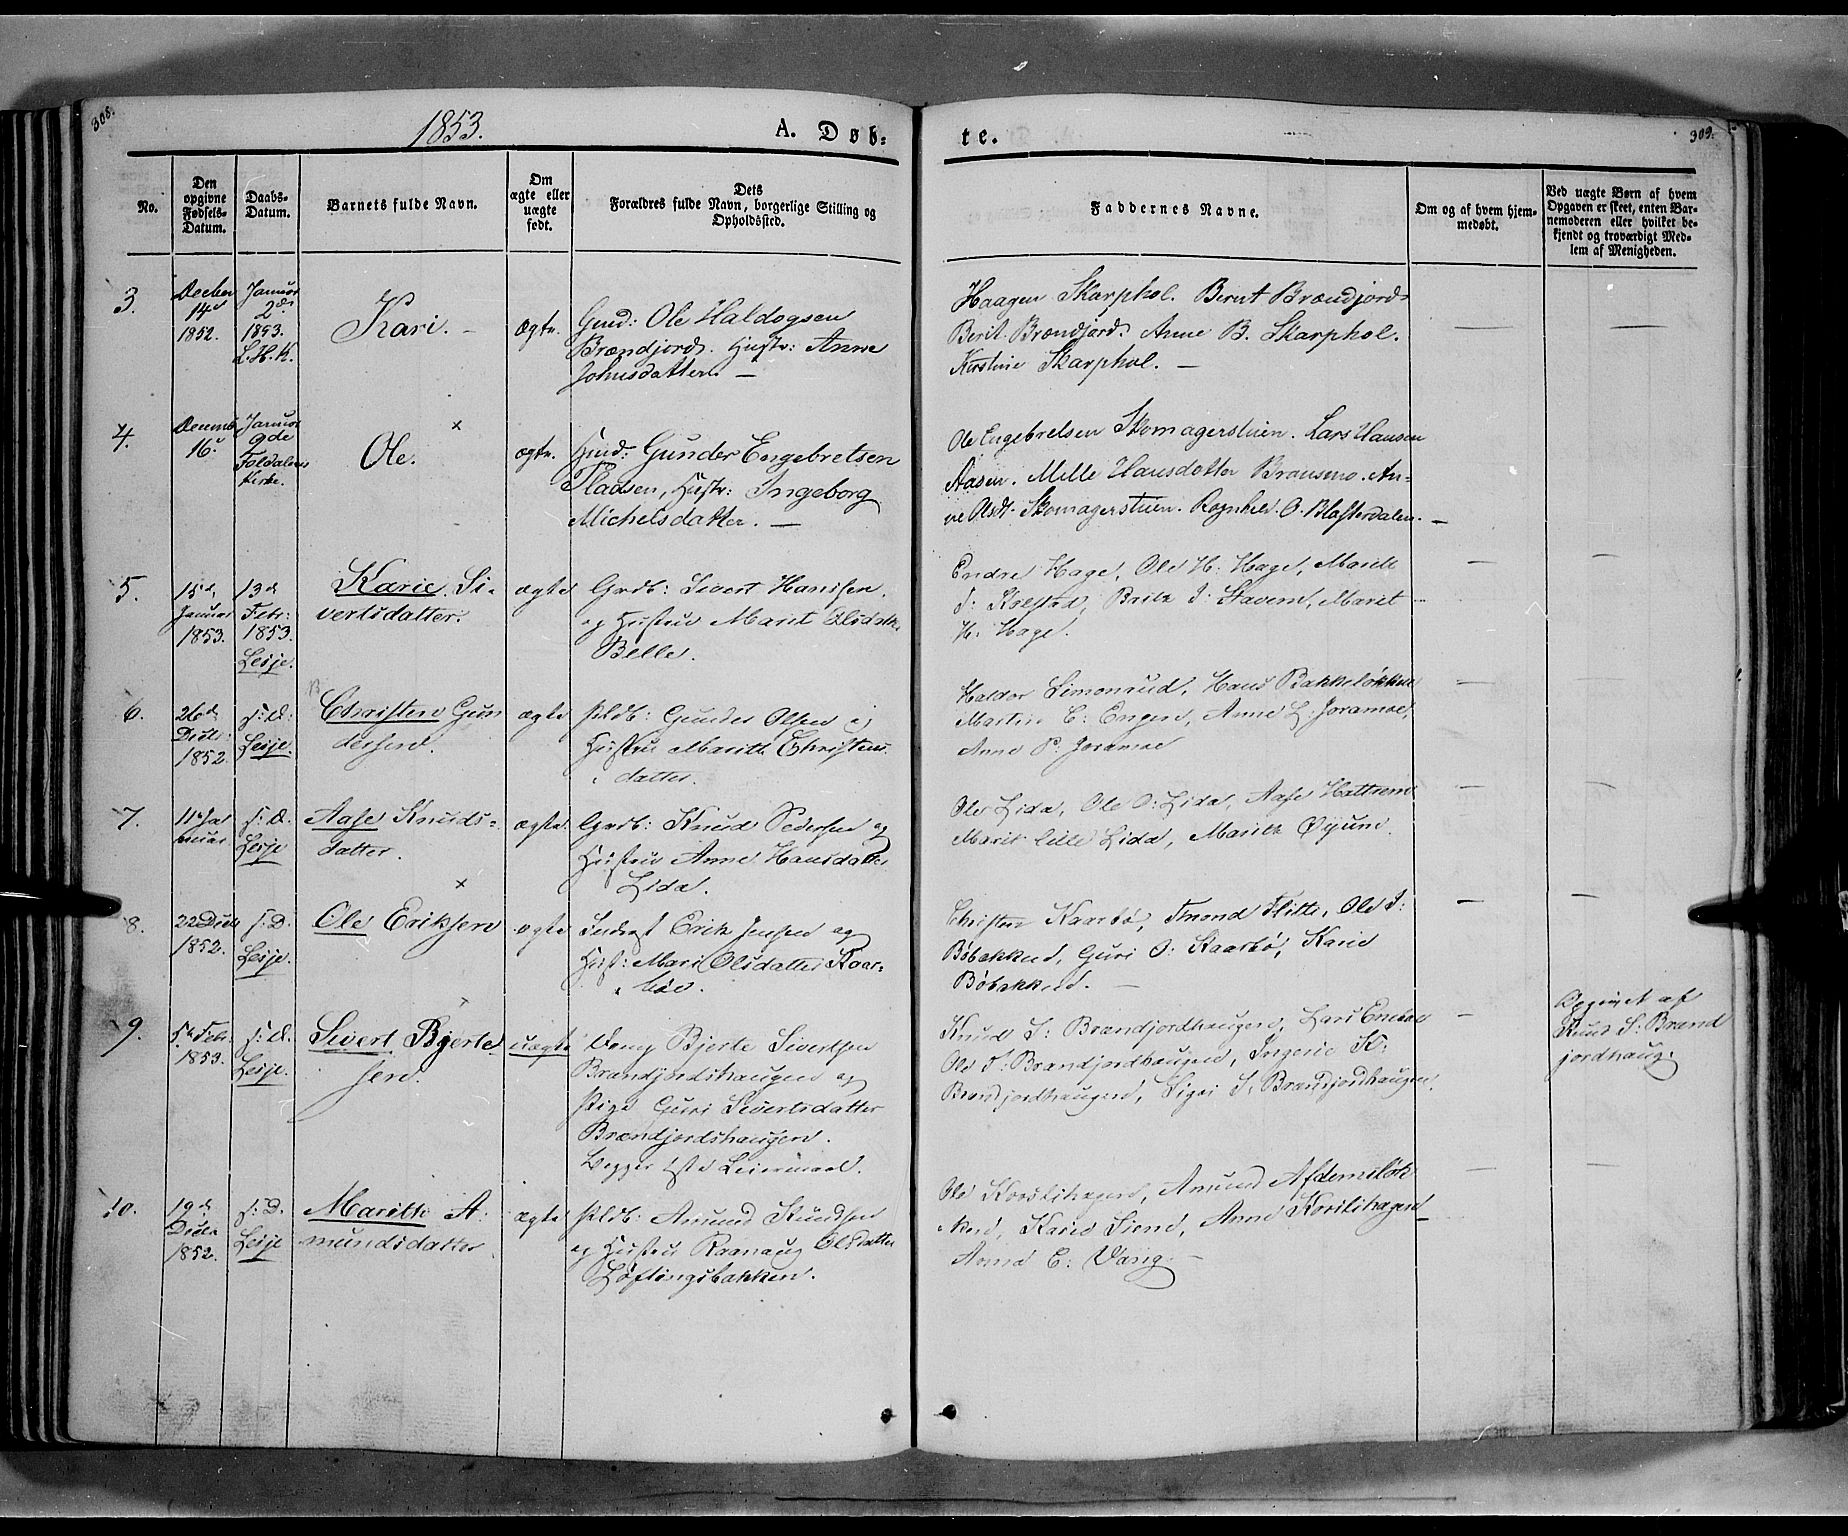 308.
1853.
A. Døb-
te.
309.
No.
Den
opgivne
Fødsels-
Datum.
Daabs-
Datum.
Barnets fulde Navn.
Om
ægte eller
uægte
født.
Dets
Forældres fulde Navn, borgerlige Stilling og
Opholdssted.
Faddernes Navne.
Om og af hvem hjem-
medøbt.
Ved uægte Børn af hvem
Opgaven er skeet, enten Bar-
nemoderen eller hvilket be-
kjendt og troværdigt Med-
lem af Menigheden.
3.
Decber
14d
1852.
Januar
2den
1853.
L.H.K.
Kari. –
ægte.
Gmd: Ole Haldogsen
Brændjord. Hustr: Anne
Johnsdatter. –
Haagen Skarphol. Bernt Brændjord.
Berit Brændjord. Anne B. Skarphol.
Kirstine Skarphol. –
4.
Decemb
16d
Januar
9de
Foldalens
Kirke.
Ole.
ægte.
Hmd: Gunder Engebretsen
Pladsen, Hustr: Ingeborg
Michelsdatter. –
Ole Engebretsen Skomagerstuen. Lars Hansen
Aasen. Mille Hansdatter Bransmo. An-
ne Olsdt. Skomagerstuen. Ragnhild O. Blæsterdalen. –
5.
15d
Januar
1853.
13d
Febr:
1853.
Lesje.
Karie Si-
vertsdatter.
ægte
Grdb: Sivert Hansen
og Hustru Marit Olsdatt.
Belle.
Endre Hage, Ole H. Hage, Marit
J: Kolstad, Brith J: Stavem, Marit
H. Hage.
6.
26d
Decbr:
1852.
s: D:
Lesje.
Christen Gun
dersen.
ægte
Pldb: Gunder Olsen og
Hustru Marith Christens
datter.
Haldor Simonrud, Hans Bakkeløkken
Martin C: Engen, Anne L: Joramoe,
Anne P. Joramoe
7.
11d Jan
nuar
s: D.
Lesje
Aase Knuds-
datter.
ægte.
Grdb: Knud Pedersen og
Hustru Anne Hansdatter
Lida.
Ole Lida, Ole O: Lida, Aase Hattrem
Marit Lille Lida, Marith Øyune.
8.
22 Decb
1852.
s: D.
Lesje.
Ole Eriksen
ægte
Inderst Erik Jensen og
Hust: Mari Olsdatter Kaar-
bøe.
Christen Kaarbø, Tmond Flitte, Ole J:
Bøbakken, Guri O: Kaarbø, Karie
Bøbakken. –
9.
5te Febr.
1853.
s: D.
Lesje.
Sivert Bjerte-
sen.
uægte
Dreng Bjerte Sivertsen
Brændjordshaugen og
Pige Guri Sivertsdatter
Brændjordshaugen.
Begges 1ste Leiermaal.
Knud S: Brændjordhaugen, Lars Enebo
Ole S: Brændjordhaugen, Ingerie K:
Brændjordhaugen, Sigri S. Brændjordhaugen.
Opgivet af
Knud S: Brænd
jordhaug.
10.
19d
Decbr
1852.
s: D.
Lesje
Marith A:
mundsdatter
ægte
Pldb: Amund Knudsen
og Hustru Raanaug Olsdatter
Løftingsbakken.
Ole Korslihagen, Amund Afdemsløk
ken, Karie Siend, Anne Korslihagen
Anne E: Vang. –